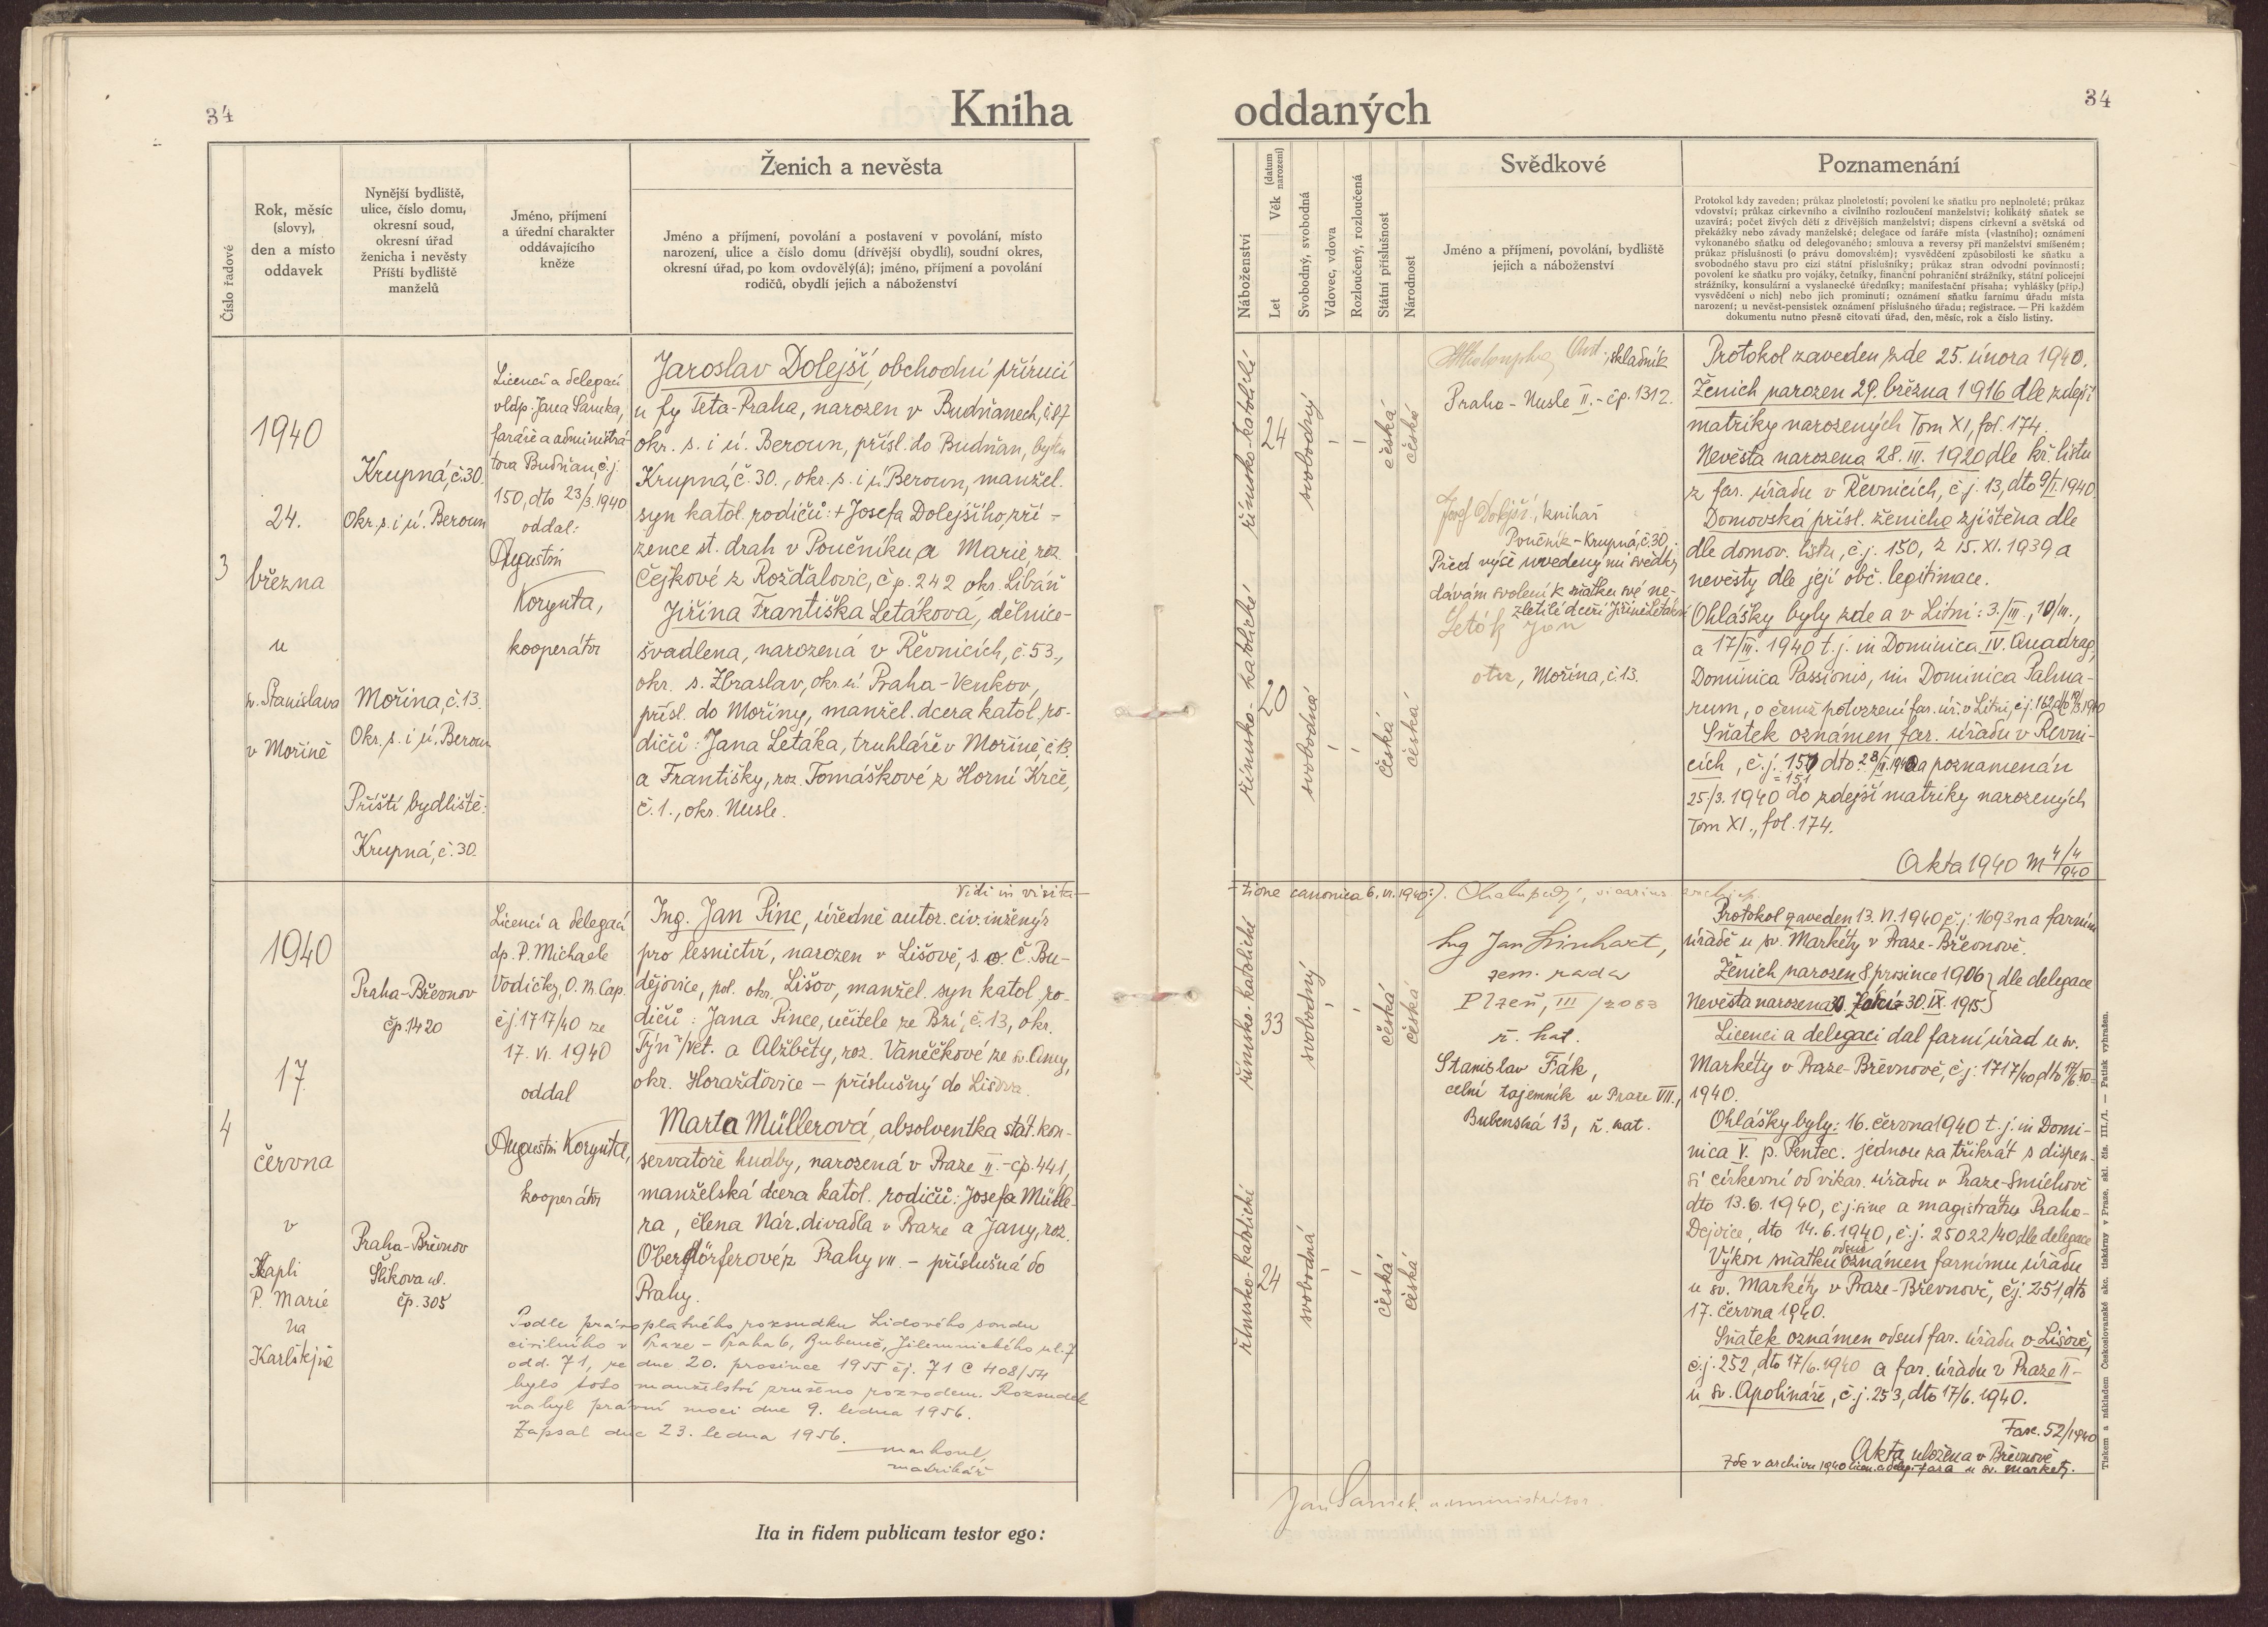 34
Kniha
Číslo řadové
Rok, měsíc
(slovy),
den a místo
oddavek
Nynější bydliště,
ulice, číslo domu,
okresní soud,
okresní úřad
ženicha i nevěsty
Příští bydliště
manželů
Jméno, příjmení
a úřední charakter
oddávajícího
kněze
Ženich a nevěsta
Jméno a příjmení, povolání a postavení v povolání, místo
narození, ulice a číslo domu (dřívější obydlí), soudní okres,
okresní úřad, po kom ovdověl̇ý(á); jméno, příjmení a povolání
rodičů, obydlí jejich a náboženství
3
1940
24.
března
u
sv. Stanislava
v Mořině
Krupná, č. 30.
Okr. s. i ú. Beroun
Mořina, č. 13.
Okr. s. i ú. Beroun
Příští bydliště:
Krupná, č. 30.
Licencí a delegací
vldp. Jana Samka,
faráře a administrá-
tora Budňan, č. j.
150, dto 23/3. 1940
oddal:
Augustin
Korynta,
kooperátor
Jaroslav Dolejší, obchodní příručí
u fy Teta-Praha, narozen v Budňanech, č. 87
okr. s. i ú. Beroun, přísl. do Budňan, bytu
Krupná, č. 30., okr. s. i ú. Beroun, manžel.
syn katol. rodičů: + Josefa Dolejšího, zří-
zence st. drah v Poučníku a Marie, roz.
Čejkové z Rožďalovic, čp. 242 okr. Libáň
Jiřina Františka Letáková, dělnice-
švadlena, narozená v Řevnicích, č. 53.,
okr. s. Zbraslav, okr. ú. Praha-Venkov,
přísl. do Mořiny, manžel. dcera katol. ro-
dičů: Jana Letáka, truhláře v Mořině, č. 13.
a Františky, roz. Tomáškové z Horní Krče,
č. 1., okr. Nusle.
Vidi in visita-
4
1940
17.
června
v
Kapli
P. Marie
na
Karlštejně
Praha-Břevnov
čp. 1420
Praha-Břevnov
Šlikova ul.
čp. 305
Licencí a delegací
dp. P. Michaele
Vodičky, O. M. Cap.
č. j. 1717/40 ze
17. VI. 1940
oddal
Augustin Korynta,
kooperátor
Ing. Jan Pinc, úředně autor. civ. inženýr
pro lesnictví, narozen v Lišově, s. o. Č. Bu-
dějovice, pol. okr. Lišov, manžel. syn katol. ro-
dičů: Jana Pince, učitele ze Bzí, č. 13, okr.
Týn n/Vlt. a Alžběty, roz. Vaněčkové ze sv. Anny,
okr. Horažďovice - příslušný do Lišova.
Marta Müllerová, absolventka stát. kon-
servatoře hudby, narozená v Praze II.-čp. 441,
manželská dcera katol. rodičů: Josefa Mülle-
ra, člena Nár. divadla v Praze a Jany, roz.
Oberdörferové z Prahy VII. - příslušná do
Prahy.
Podle právoplatného rozsudku Lidového soudu
civilního v Praze - Praha 6, Bubeneč, Jilemnického ul. 7
odd. 71, ze dne 20. prosince 1955 čj. 71 C 408/54
bylo toto manželství zrušeno rozvodem. Rozsudek
nabyl právní moci dne 9. ledna 1956.
Zapsal dne 23. ledna 1956.
matrikář
Ita in fidem publicam testor ego:
34
oddaných
Náboženství
Let
Věk (datum narození)
Svobodný, svobodná
Vdovec, vdova
Rozloučený, rozloučená
Státní příslušnost
Národnost
Svědkové
Jméno a příjmení, povolání, bydliště
jejich a náboženství
Poznamenání
Protokol kdy zaveden; průkaz plnoletosti; povolení ke sňatku pro neplnoleté; průkaz
vdovství; průkaz církevního a civilního rozloučení manželství; kolikátý sňatek se
uzavírá; počet živých dětí z dřívějších manželství; dispens církevní a světská od
překážky nebo závady manželské; delegace od faráře místa (vlastního); oznámení
vykonaného sňatku od delegovaného; smlouva a reversy při manželství smíšeném;
průkaz příslušnosti (o právu domovském); vysvědčení způsobilosti ke sňatku a
svobodného stavu pro cizí státní příslušníky; průkaz stran odvodní povinnosti;
povolení ke sňatku pro vojáky, četníky, finanční pohraniční strážníky, státní policejní
strážníky, konsulární a vyslanecké úředníky; manifestační přísaha; vyhlášky (příp.)
vysvědčení o nich) nebo jich prominutí; oznámení sňatku farnímu úřadu místa
narození; u nevěst-pensistek oznámení příslušného úřadu; registrace. — Při každém
dokumentu nutno přesně citovati úřad, den, měsíc, rok a číslo listiny.
římsko-katolické
24
svobodný
česká
česká
římsko-katolické
20
svobodná
česká
česká
skladník
Praha-Nusle II.-čp. 1312.
Josef Dolejší, knihař
Poučník-Krupná, č. 30.
Před výše uvedenými svědky
dávám svolení k sňatku své ne-
zletilé dceři Jiřině Letákové
Leták Jan
otec, Mořina, č. 13.
Protokol zaveden zde 25. února 1940.
Ženich narozen 29. března 1916 dle zdejší
matriky narozených Tom XI, fol. 174.
Nevěsta narozena 28. III. 1920 dle kř. listu
z far. úřadu v Řevnicích, č. j. 13, dto 9/I. 1940.
Domovská přísl. ženicha zjištěna dle
dle domov. listu, č. j. 150, z 15. XI. 1939 a
nevěsty dle její obč. legitimace.
Ohlášky byly zde a v Litni: 3./III., 10/III.,
a 17/III. 1940 t. j. in Dominica IV. Quadrag.,
Dominica Passionis, in Dominica Palma-
rum, o čemž potvrzení far. úř. v Litni, č. j. 162
Sňatek oznámen far. úřadu v Řevni-
cích, č. j. 151 dto a poznamenán
= 151
25./3. 1940 do zdejší matriky narozených
Tom XI., fol. 174.
Akta 1940 M 4/4 1940
-tione canonica 6. VI. 1940:). Chalupecký, vicarius
římsko-katolické
33
svobodný
česká
česká
římsko-katolické
24
svobodná
česká
česká
Ing Jan Linhart,
zem. rada
Plzeň, III/2083
ř. kat.
Stanislav Fiák,
celní tajemník v Praze VII.,
Bubenská 13, ř. kat.
Protokol zaveden 13. VI. 1940 č. j. 1693 na farním
úřadě u sv. Markéty v Praze-Břevnově.
Ženich narozen 8 prosince 1906 } dle delegace
Nevěsta narozena 30. IX. 1915 }
Licenci a delegaci dal farní úřad u sv.
Markéty v Praze-Břevnově, č. j. 1717/40, dto 17/6. 40-
1940.
Ohlášky byly: 16. června 1940 t. j. in Domi-
nica V. p. Pentec. jednou za třikrát s dispen-
sí církevní od vikar. úřadu v Praze-Smíchově
dto 13. 6. 1940, č. j. sine a magistrátu Praha-
Dejvice, dto 14. 6. 1940, č. j. 25022/40 dle delegace
Výkon sňatku odsud oznámen farnímu úřadu
u sv. Markéty v Praze-Břevnově, č. j. 251, dto
17. června 1940.
Sňatek oznámen odsud far. úřadu v Lišově,
č. j. 252, dto 17/6. 1940 a far. úřadu v Praze II-
u sv. Apolináře, č. j. 253, dto 17/6. 1940.
Fasc. 52/1940
Akta uložena v Břevnově
Zde v archivu 1940 licen. a deleg. fara u sv. Markéty.
Jan Samek, administrátor
Tiskem a nákladem Československé akc. tiskárny v Praze, skl. čís. III./1. — Patisk vyhrazen.